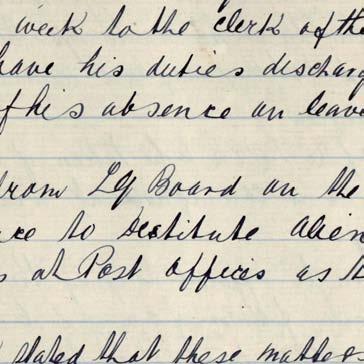 week to the clerk of the
have his duties discharg
f his absence on leave
from LG Board on the
to Destitute Alien
s at Post offices as t
stated that these matters